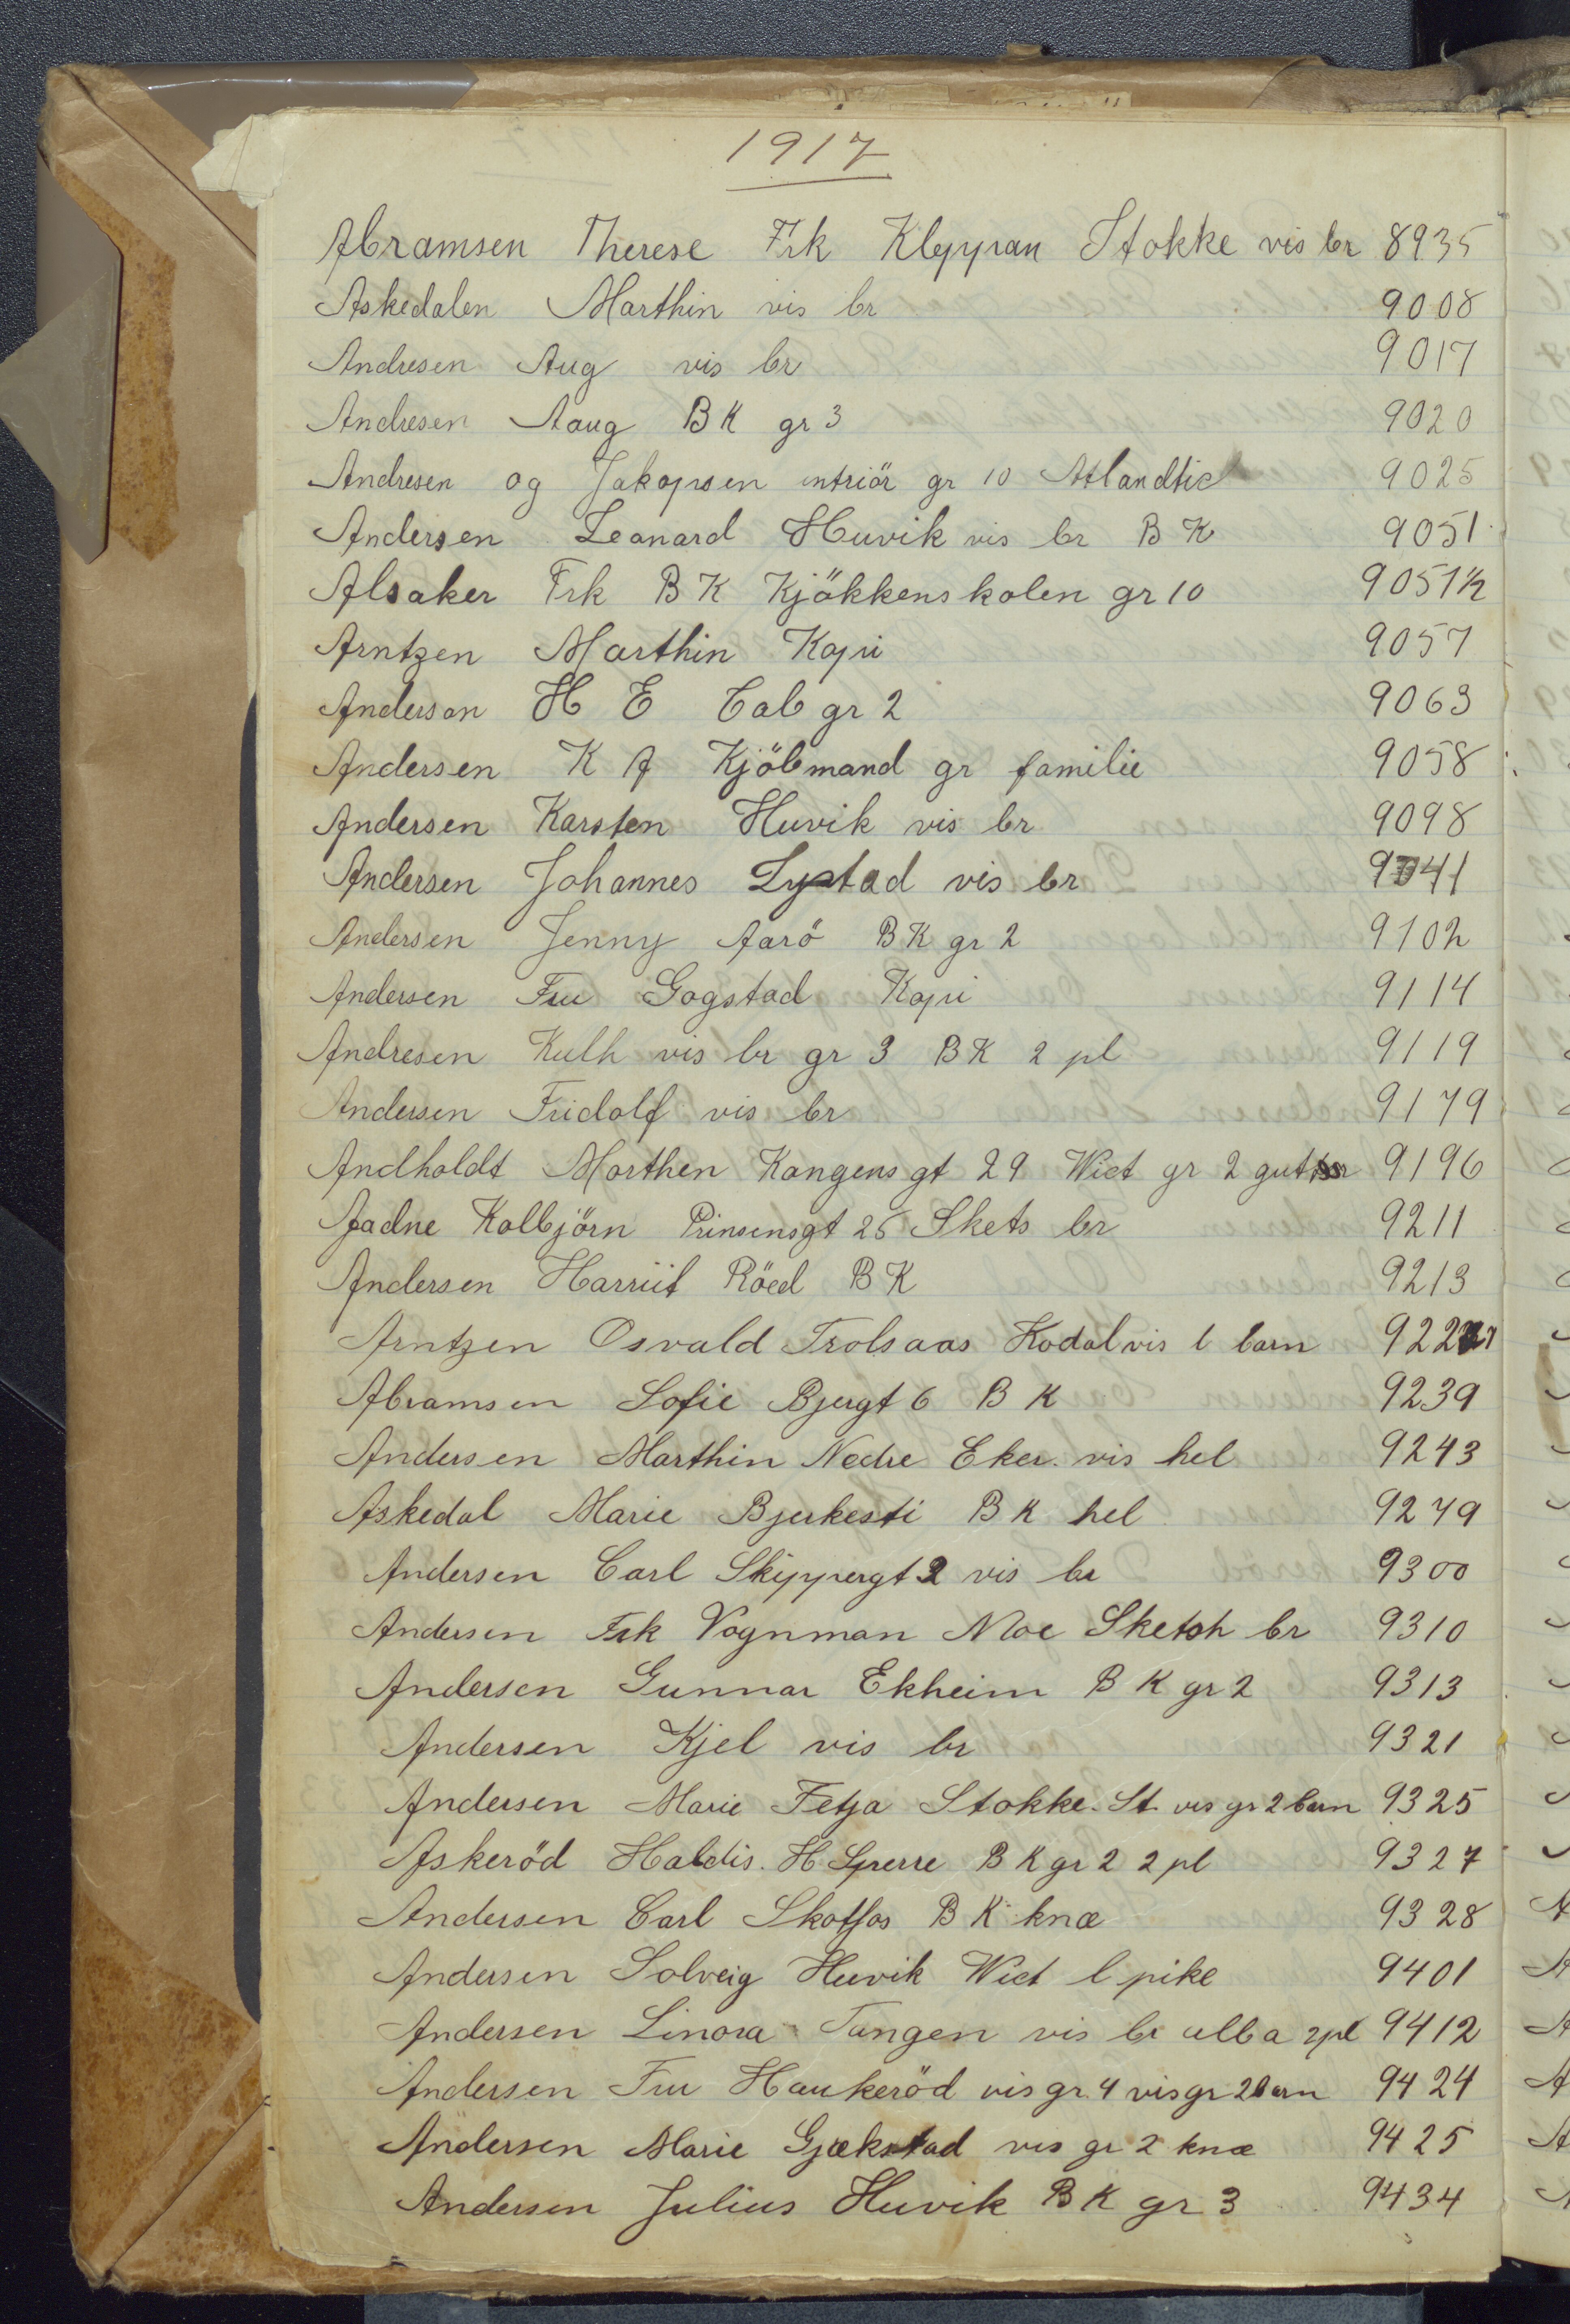 1917
Abramsen Therese Frk Klyppran Stokke vis br 8935
Askedalen Marthin vis br 9008
Andresen Aug vis br 9017
Andresen Aaug B K gr 3 9020
Andresen og Jakopsen intriör gr 10 Atlandtic 9025
Andersen Leonard Huvik vis br B K 9051
Alsaker Frk B K Kjökkenskolen gr 10 9051½
Arntzen Marthin Kopi 9057
Anderson H E Cab gr 2 9063
Andersen K A Kjöbmand gr familie 9058
Andersen Karsten Huvik vis br 9098
Andersen Johannes Lystad vis br 9041
Andersen Jenny Aarö B K gr 2 9102
Andersen Fru Gogstad Kopi 9114
Andresen Kulh vis br gr 3 B K 2 pl 9119
Andersen Fridolf vis br 9179
Andholdt Morthen Kongens gt 29 Wict gr 2 gutter 9196
Aadne Kolbjörn Prinsensgt 25 Skets br 9211
Andersen Harriit Röed B K 9213
Arntzen Osvald Trolsaas Kodal vis l barn 9227
Abramsen Sofie Bjergt 6 B K 9239
Andersen Marthin Nedre Eker. vis hel 9243
Askedal Marie Bjerkesti B K hel 9279
Andersen Carl Skippergt 2 vis br 9300
Andersen Frk Vognman Moe Sketch br 9310
Andersen Gunnar Ekheim B K gr 2 9313
Andersen Kjel vis br 9321
Andersen Marie Fetja Stokke. St. vis gr 2 barn 9325
Askeröd Haldis. H Sperre B K gr 2 2 pl 9327
Andersen Carl Skotfos B K knæ 9328
Andersen Solveig Huvik Wict l pike 9401
Andersen Linora Tangen vis br alba 2pl 9412
Andersen Fru Haukeröd vis gr. 4 vis gr 2 barn 9424
Andersen Marie Gjekstad vis gr 2 knæ 9425
Andersen Julius Huvik B K gr 3 9434